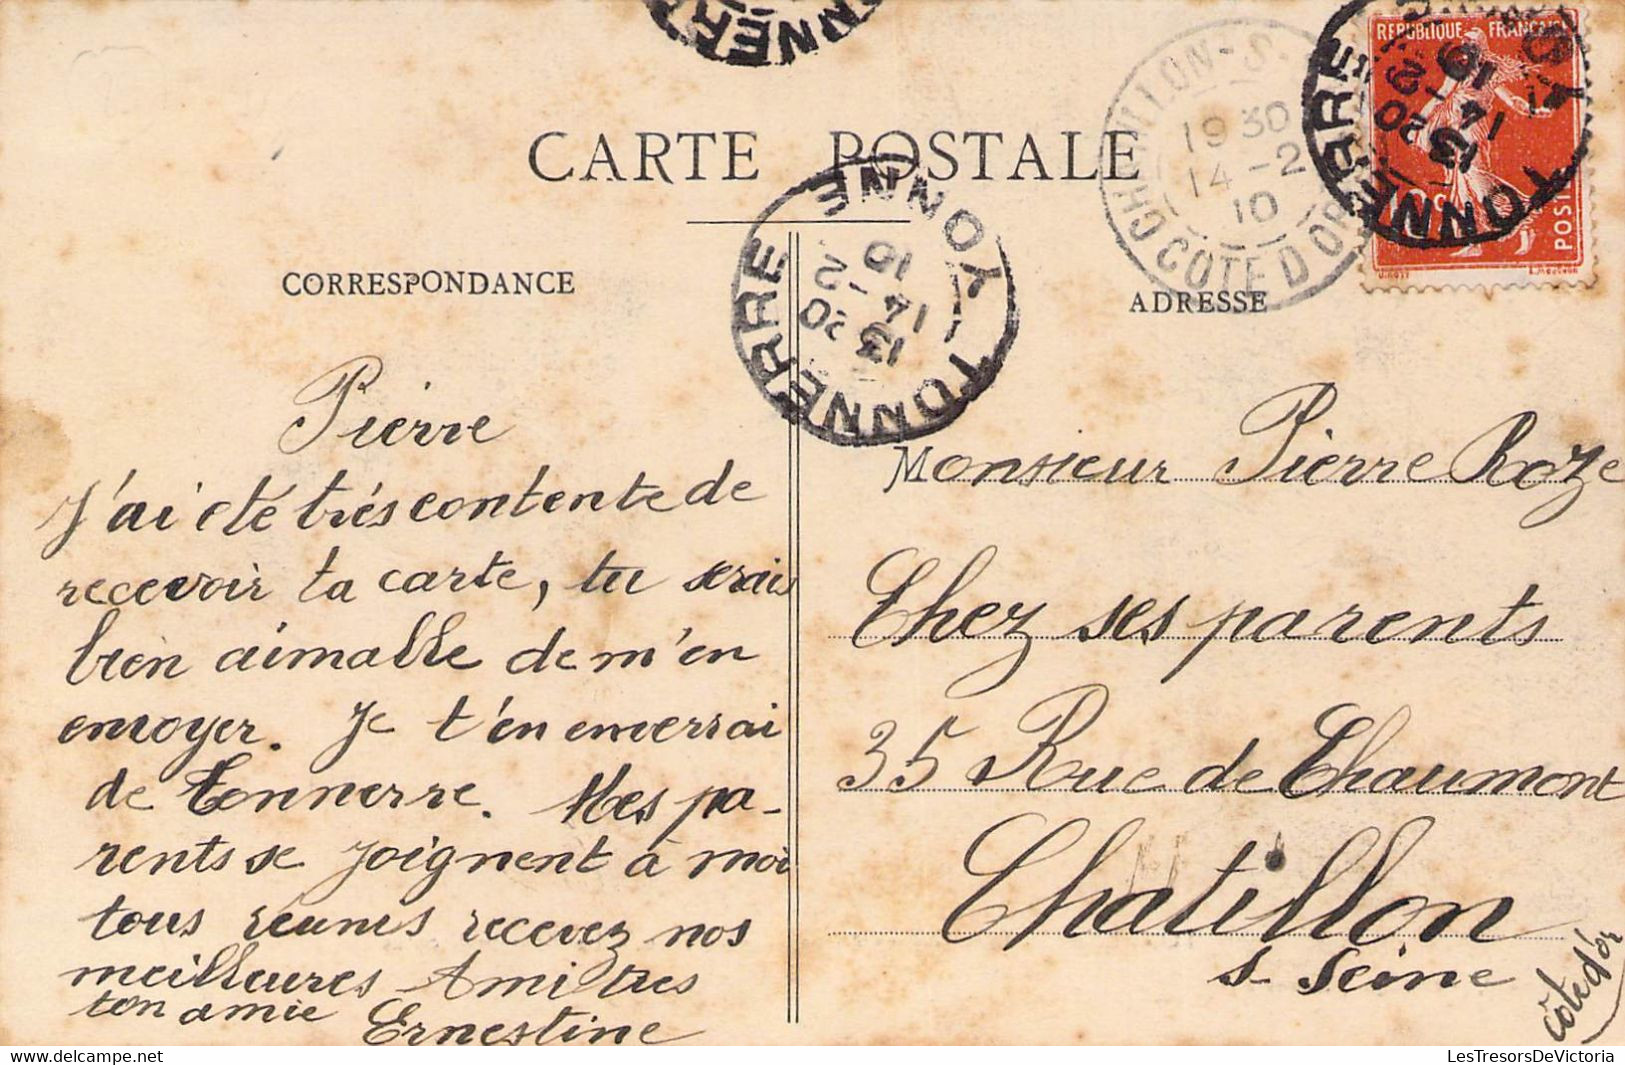 CARTE POSTALE
CORRESPONDANCE
Pierre
J'ai été très contente de
recevoir ta carte, tu serais
bien aimable de m'en
envoyer. Je t'en enverrai
de Tonnerre. Mes pa-
rents se joignent à moi
tous réunis recevez nos
meilleures Amitres
ton amie Ernestine
ADRESSE
Monsieur Pierre Roze
Chez ses parents
35 Rue de Chaumont
Chatillon
s- Seine
Côte d'or
TONNERRE YONNE
13 20
14 -2
10
CHATILLON-S.
COTE D'OR
19 30
14 -2
10
REPUBLIQUE FRANÇAISE
POSTES
TONNERRE
13 20
14 -2
10
LesTresorsDeVictoria
https://www.delcampe.net